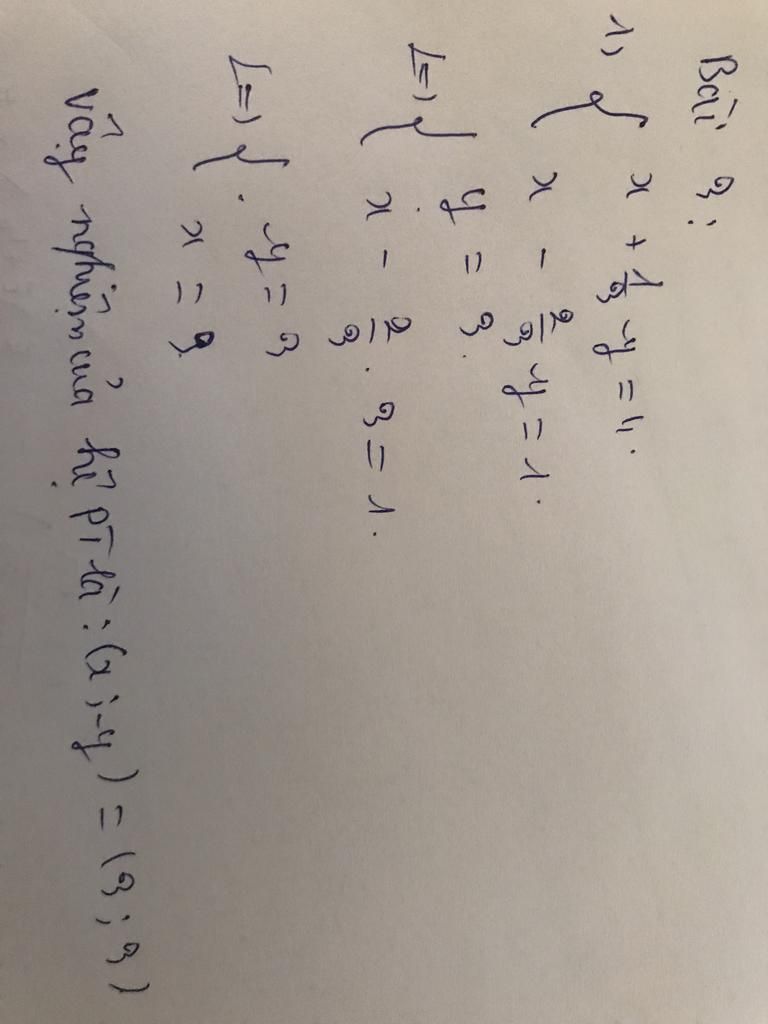 Bài 3:
1, { x + 1/3 y = 4.
x - 2/3 y = 1.
<=> { y = 3.
x - 2/3 . 3 = 1.
<=> { y = 3
x = 3.
Vậy nghiệm của hệ PT là: (x; y) = (3; 3)